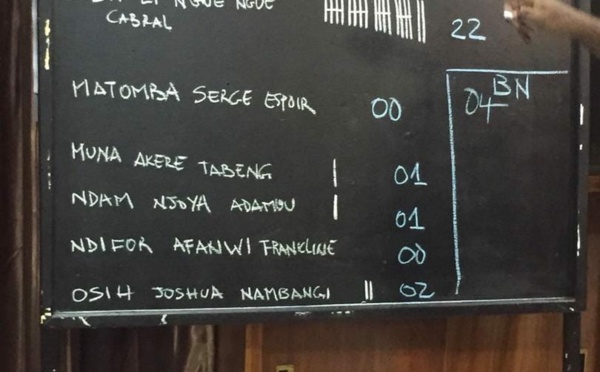 NGUE NGUE
CABRAL 22
BN
MATOMBA SERGE ESPOIR 00 04
MUNA AKERE TABENG | 01
NDAM NJOYA ADAMOU | 01
NDIFOR AFANWI FRANKLINE 00
OSIH JOSHUA NAMBANGI || 02